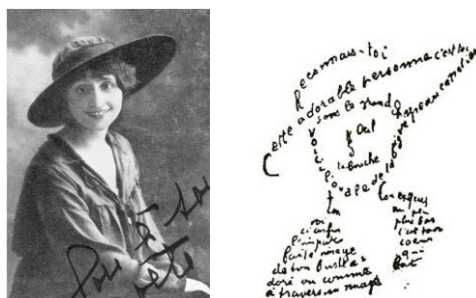 Reconnais-toi
Cette adorable personne c'est toi
Sous le grand chapeau canotier
Oeil
Nez
la bouche
Voici l'ovale de ta figure
Ton
cou exquis
voi
ci enfin
l'impar
faite image
de ton buste a
doré vu comme
à travers un nuage
un peu
plus bas
c'est ton
coeur
qui
bat
à